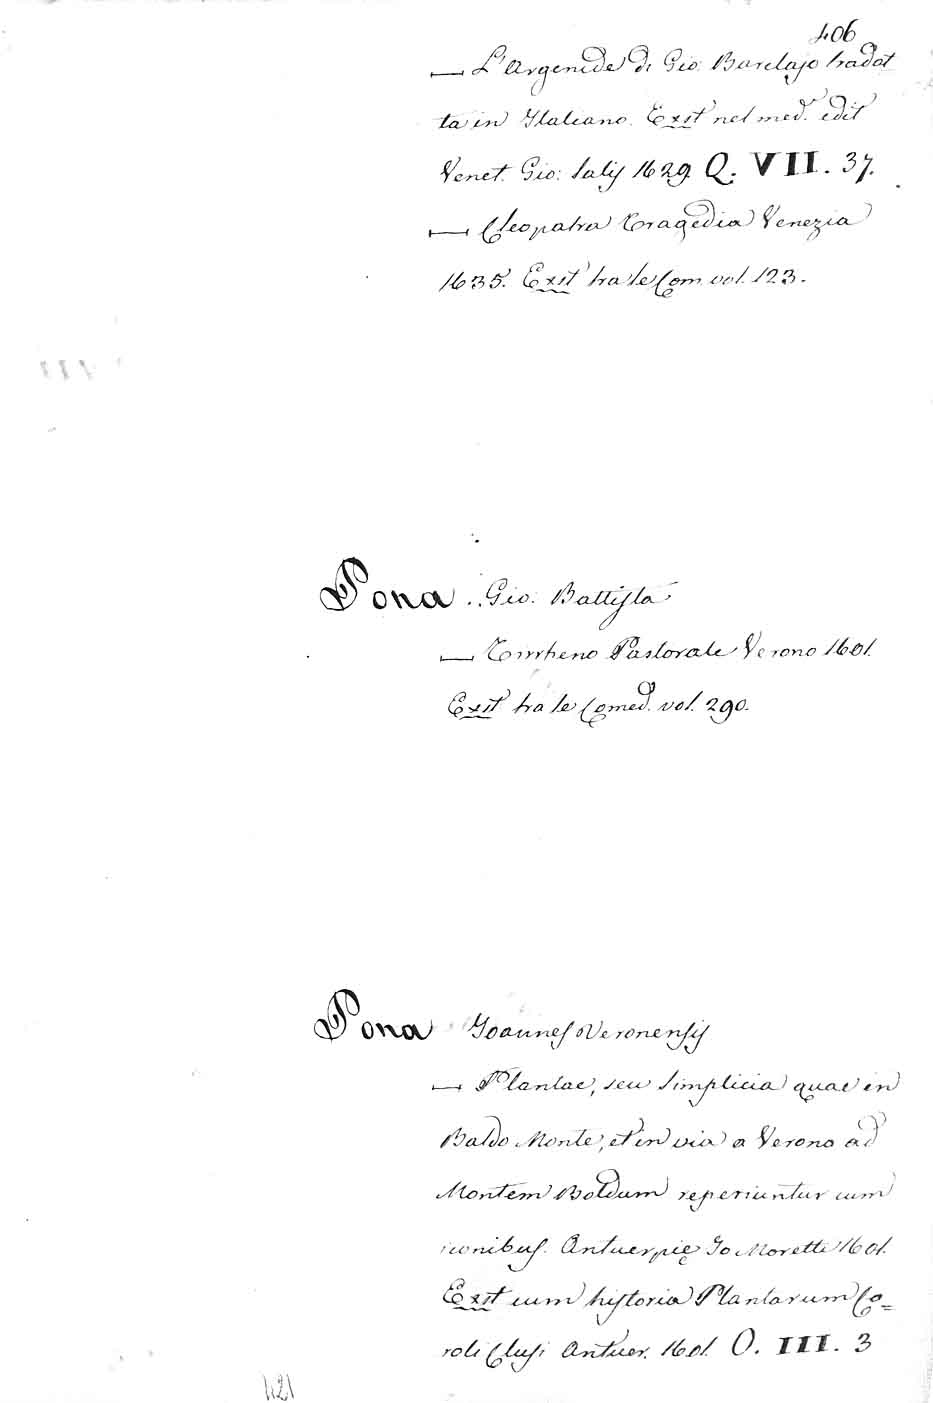 406
— L'Argenide di Gio: Barclajo tradot
ta in Italiano. Exit nel med. edit
Venet. Gio: Salis 1629. Q. VII. 37.
— Cleopatra Tragedia Venezia
1635. Exit tra le Com. vol. 123.
Pona Gio: Battista
— Tirrheno Pastorale Verona 1601.
Exit tra le Comed. vol. 290.
Pona Joannes Veronensis
— Plantae, seu Simplicia quae in
Baldo Monte, et in via a Verona ad
Montem Baldum reperiuntur cum
iconibus. Antuerpię Jo Moretti 1601.
Exit cum historia Plantarum Ca=
roli Clusi Antuer. 1601. O. III. 3